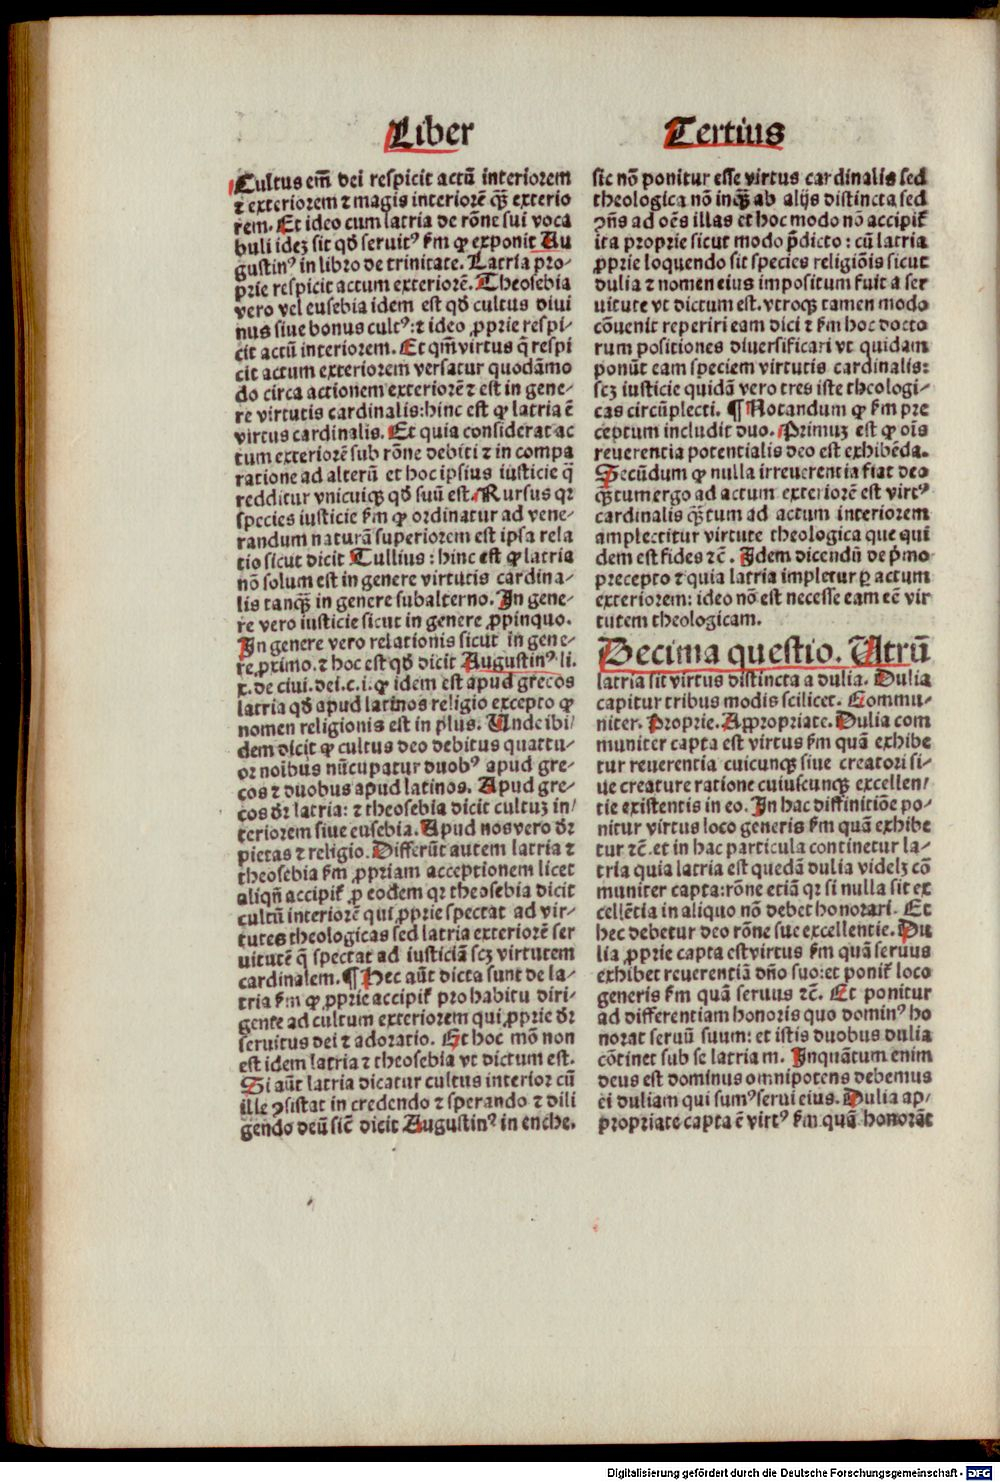 Liber Tertius
Cultus em̄ dei respicit actū interiorem
⁊ exteriorem ⁊ magis interiorē qꝫ̄ exterio
rem. Et ideo cum latria de rōne sui voca
buli ideꝫ sit qđ seruitꝰ ẜm ꝙ exponit Au
gustinꝰ in libro de trinitate. Latria pro-
prie respicit actum exteriorē. Theosebia
vero vel eusebia idem est qđ cultus diui
nus siue bonus cultꝰ: ⁊ ideo ꝓprie respi-
cit actū interiorem. Et qm̄ virtus q̄ respi
cit actum exteriorem versatur quodāmo
do circa actionem exteriorē ⁊ est in gene-
re virtutis cardinalis: hinc est ꝙ latria ē
virtus cardinalis. Et quia considerat ac
tum exteriorē sub rōne debiti ⁊ in compa
ratione ad alterū et hoc ipsius iusticie q̄
redditur vnicuiqꝫ qđ suū est. Rursus qr
species iusticie ẜm ꝙ ordinatur ad vene-
randum naturā superiorem est ipsa rela
tio sicut dicit Tullius: hinc est ꝙ latria
nō solum est in genere virtutis cardina-
lis tanqꝫ̄ in genere subalterno. In gene-
re vero iusticie sicut in genere ꝓpinquo.
In genere vero relationis sicut in gene-
re ꝓximo. ⁊ hoc est qđ dicit Augustinꝰ li.
x. de ciui. dei. c. i. ꝙ idem est apud grecos
latria qđ apud latinos religio excepto ꝙ
nomen religionis est in plus. Unde ibi-
dem dicit ꝙ cultus deo debitus quattu-
or noībus nūcupatur duobꝰ apud gre-
cos ⁊ duobus apud latinos. Apud gre-
cos dr̄ latria: ⁊ theosebia dicit cultuꝫ in-
teriorem siue eusebia. Apud nos vero dr̄
pietas ⁊ religio. Differūt autem latria ⁊
theosebia ẜm ꝓpriam acceptionem licet
aliqn̄ accipiūt ꝓ eodem qr theosebia dicit
cultū interiorē qui ꝓprie spectat ad vir-
tutes theologicas sed latria exteriorē ser
uitutē q̄ spectat ad iusticiā scꝫ virtutem
cardinalem. ¶ Hec aūt dicta sunt de la-
tria ẜm ꝙ ꝓprie accipit̄ pro habitu diri-
gente ad cultum exteriorem qui ꝓprie dr̄
seruitus dei ⁊ adoratio. Et hoc mō non
est idem latria ⁊ theosebia vt dictum est.
Si aūt latria dicatur cultus interior cū
ille ↄsistat in credendo ⁊ sperando ⁊ dili
gendo deū sic̄ dicit Augustinꝰ in enche.
sic nō ponitur esse virtus cardinalis sed
theologica nō inqꝫ̄ ab alijs distincta sed
ↄn̄s ad oēs illas et hoc modo nō accipit̄
ita proprie sicut modo p̄dicto: cū latria
ꝓprie loquendo sit species religiōis sicut
dulia ⁊ nomen eius impositum fuit a ser
uitute vt dictum est. vtroqꝫ tamen modo
cōuenit reperiri eam dici ⁊ ẜm hoc docto
rum positiones diuersificari vt quidam
ponūt eam speciem virtutis cardinalis:
scꝫ iusticie quidā vero tres iste theologi-
cas circūplecti. ¶ Notandum ꝙ ẜm pre
ceptum includit duo. Primuꝫ est ꝙ oīs
reuerentia potentialis deo est exhibēda.
Secūdum ꝙ nulla irreuerentia fiat deo
qꝫ̄tum ergo ad actum exteriorē est virtꝰ
cardinalis qꝫ̄tum ad actum interiorem
amplectitur virtute theologica que qui
dem est fides ⁊c̄. Idem dicendū de p̄mo
precepto ⁊ quia latria impletur ꝑ actum
exteriorem: ideo nō est necesse eam eē vir
tutem theologicam.
Decima questio. Utrū
latria sit virtus distincta a dulia. Dulia
capitur tribus modis scilicet. Commu-
niter. Proprie. Appropriate. Dulia com
muniter capta est virtus ẜm quā exhibe
tur reuerentia cuicunqꝫ siue creatori si-
ue creature ratione cuiuscunqꝫ excellen-
tie existentis in eo. In hac diffinitiōe po-
nitur virtus loco generis ẜm quā exhibe
tur ⁊c̄. et in hac particula continetur la-
tria quia latria est quedā dulia videlꝫ cō
muniter capta: rōne etiā qr si nulla sit ex
cellētia in aliquo nō debet honorari. Et
hec debetur deo rōne sue excellentie. Du
lia ꝓprie capta est virtus ẜm quā seruus
exhibet reuerentiā dn̄o suo: et ponit̄ loco
generis ẜm quā seruus ⁊c̄. Et ponitur
ad differentiam honoris quo dominꝰ ho
norat seruū suum: et istis duobus dulia
cōtinet sub se latriam. Inquātum enim
deus est dominus omnipotens debemus
ei duliam qui sumꝰ serui eius. Dulia ap-
propriate capta ē virtꝰ ẜm quā honorāt
Digitalisierung gefördert durch die Deutsche Forschungsgemeinschaft - DFG